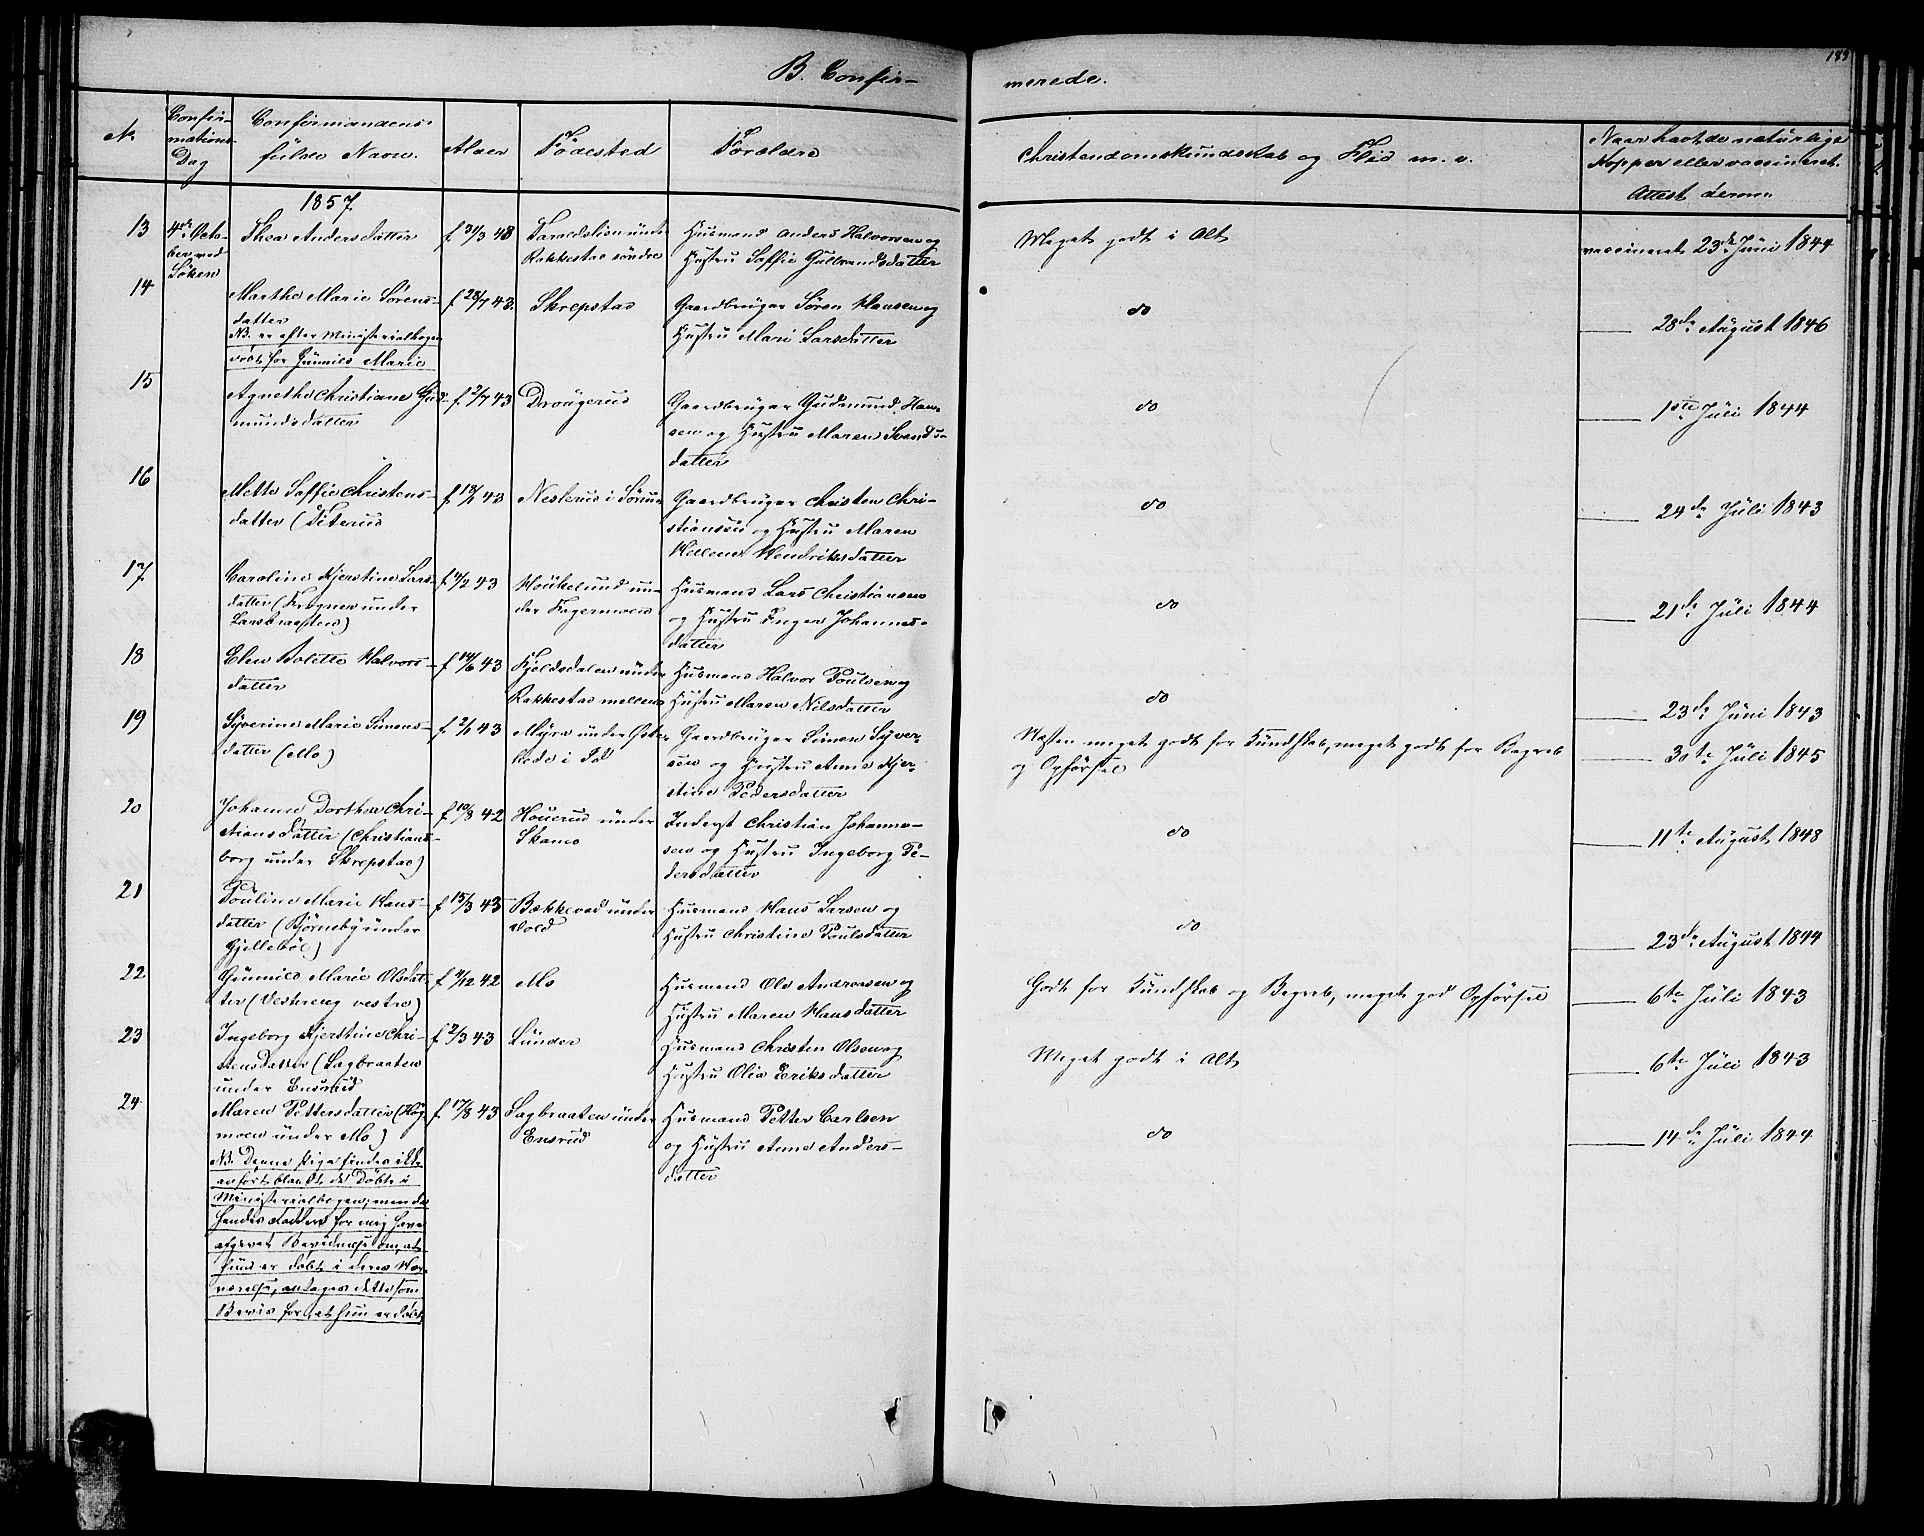 B. Confir-
merede.
183
N.
Confir-
mations
Dag
Confirmandens
fulde Navn.
Alder
Födested
Forældre
Christendomskundskab og Flid m. v.
Naar havt de naturlige
Kopper eller vaccineret.
Attest derom
1857.
13
4de Octo-
ber ved
Söken
Thea Andersdatter
f. 31/3 43
under
Rakkestad söndre
Husmand Anders Halvorsen og
Hustru Saffie Gulbrandsdatter
Meget godt i Alt
vaccineret 23de Juni 1844
14
Marthe Marie Sørens-
datter
NB. er efter Ministerialbogen
döbt for Gunnild Marie
f. 28/7 43.
Skrepstad
Gaardbruger Søren Hansen og
Hustru Mari Larsdatter
do
28de August 1846
15
Agnethe Christiane Gud-
mundsdatter
f. 2/7 43
Gaardbruger Gudmund Han-
sen og Hustru Maren Svends-
datter
do
1ste Juli 1844
16
Mette Saffie Christens-
datter (Titerud
f. 18/1 43
Nesterud i Sörum
Gaardbruger Christen Chri-
stianssen og Hustru Maren
Hellene Hendriksdatter
do
24de Juli 1843
17
Caroline Kjerstine Lars-
datter (Krogner under
Larsbraaten)
f. 4/2 43
Houkelund un-
der Fagermoen
Husmand Lars Christiansen
og Hustru Inger Johannes-
datter
do
21de Juli 1844
18
Elen Bolette Halvors-
datter
f. 14/6 43
Kjeldsdalen under
Rakkestad mellem
Husmand Halvor Poulsen og
Hustru Maren Nilsdatter
do
23de Juni 1843
19
Syverine Marie Simens-
datter (Mo)
f. 2/1 43
Myra under
i Id
Gaardbruger Simen Syver-
sen og Hustru Anne Kjer-
stine Pedersdatter
Næsten meget godt for Kundskab, meget godt for Begreb
og Opførsel
30te Juli 1845
20
Johanne Dorthea Chri-
stiansdatter (Christians-
borg under Skrepstad)
f. 10/8 42
Houerud under
Skamo
Inderst Christian Johannes-
sen og Hustru Ingeborg Pe-
dersdatter
do
11te August 1848
21
Pouline Marie Hans-
datter (Bjørneby under
Gjellebøl)
f. 15/3 43
Bækkevad under
Vold
Husmand Hans Larsen og
Hustru Christine Poulsdatter
do
23de August 1844
22
Gunnild Marie Olsdat-
ter (Vestreng vestre)
f. 4/12 42
Mo
Husmand Ole Andreasen og
Hustru Maren Hansdatter
Godt for Kundskab og Begreb, meget god Opførsel
6te Juli 1843
23
Ingeborg Kjerstine Chri-
stensdatter (Sagbraaten
under Ensrud
f. 2/3 43
Lunder
Husmand Christen Olsen og
Hustru Olia Eriksdatter
Meget godt i Alt
6te Juli 1843
24
Maren Pettersdatter (Høg-
moen under Mo)
NB. Denne Pige findes ikke
anført blandt de Døbte i
Ministerialbogen; men da
hendes Faddere for mig have
afgivet Bevidnelse om, at
hun er døbt i deres Nær-
værelse, antages dette som
Bevis for, at hun er døbt.
f. 17/8 43
Sagbraaten under
Ensrud
Husmand Petter Carlsen
og Hustru Anne Anders-
datter
do
14de Juli 1844